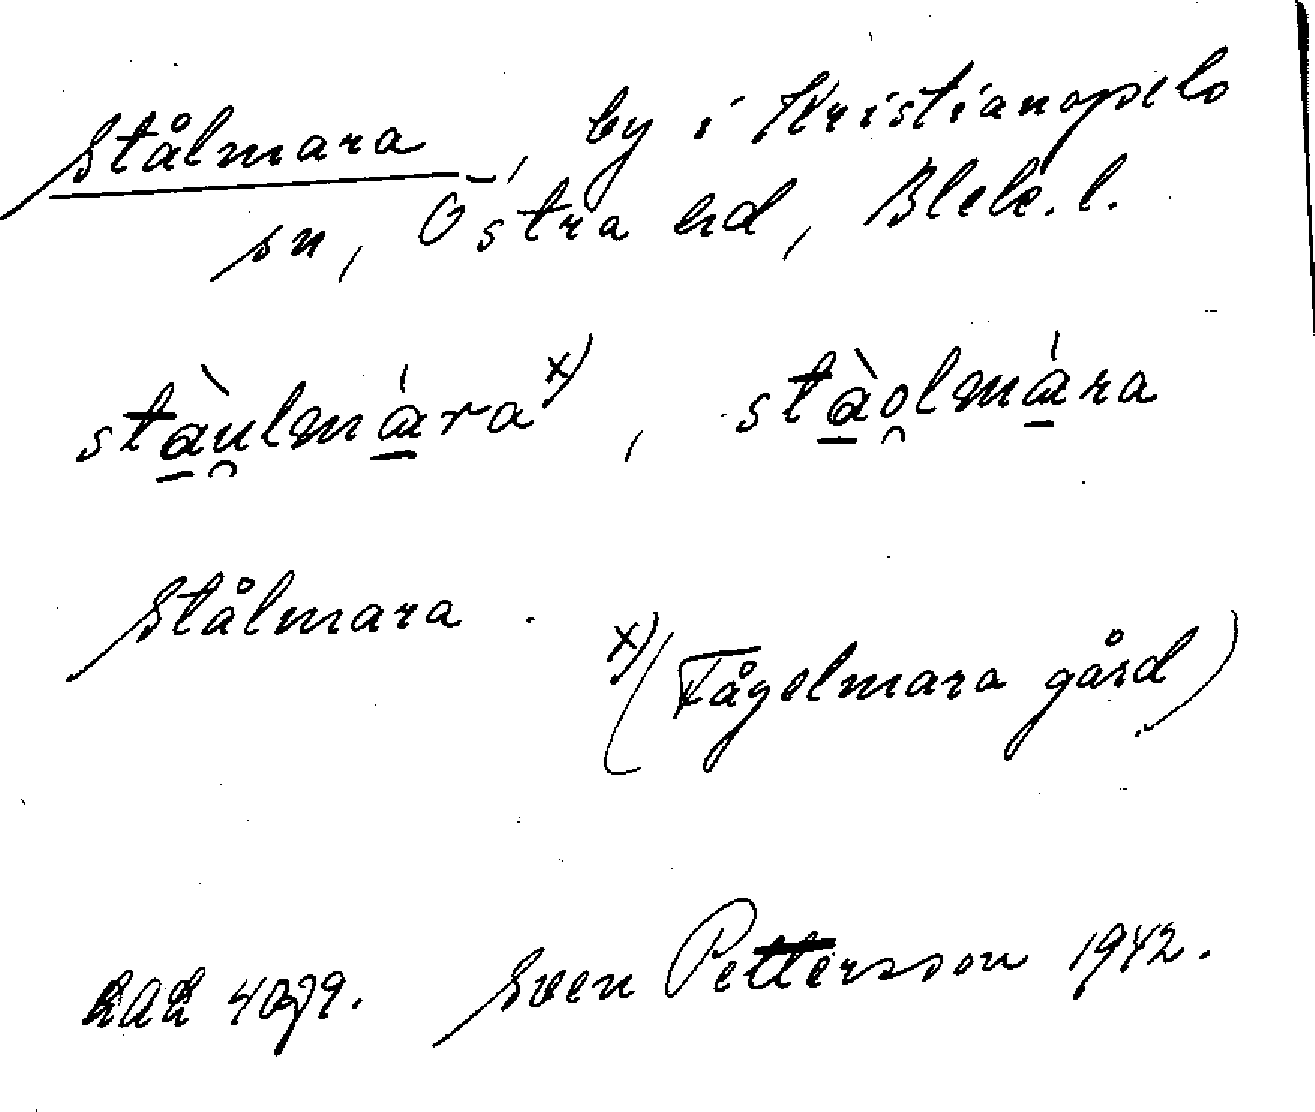 Stålmara, by i Kristianopels
sn, Östra hd, Blek. l.
stà̱u̯lmá̱ra x), stà̱o̯lmá̱ra
Stålmara.
x) (Fågelmara gård)
Sven Pettersson 1942.